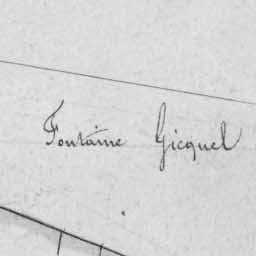 Fontaine Gicquel